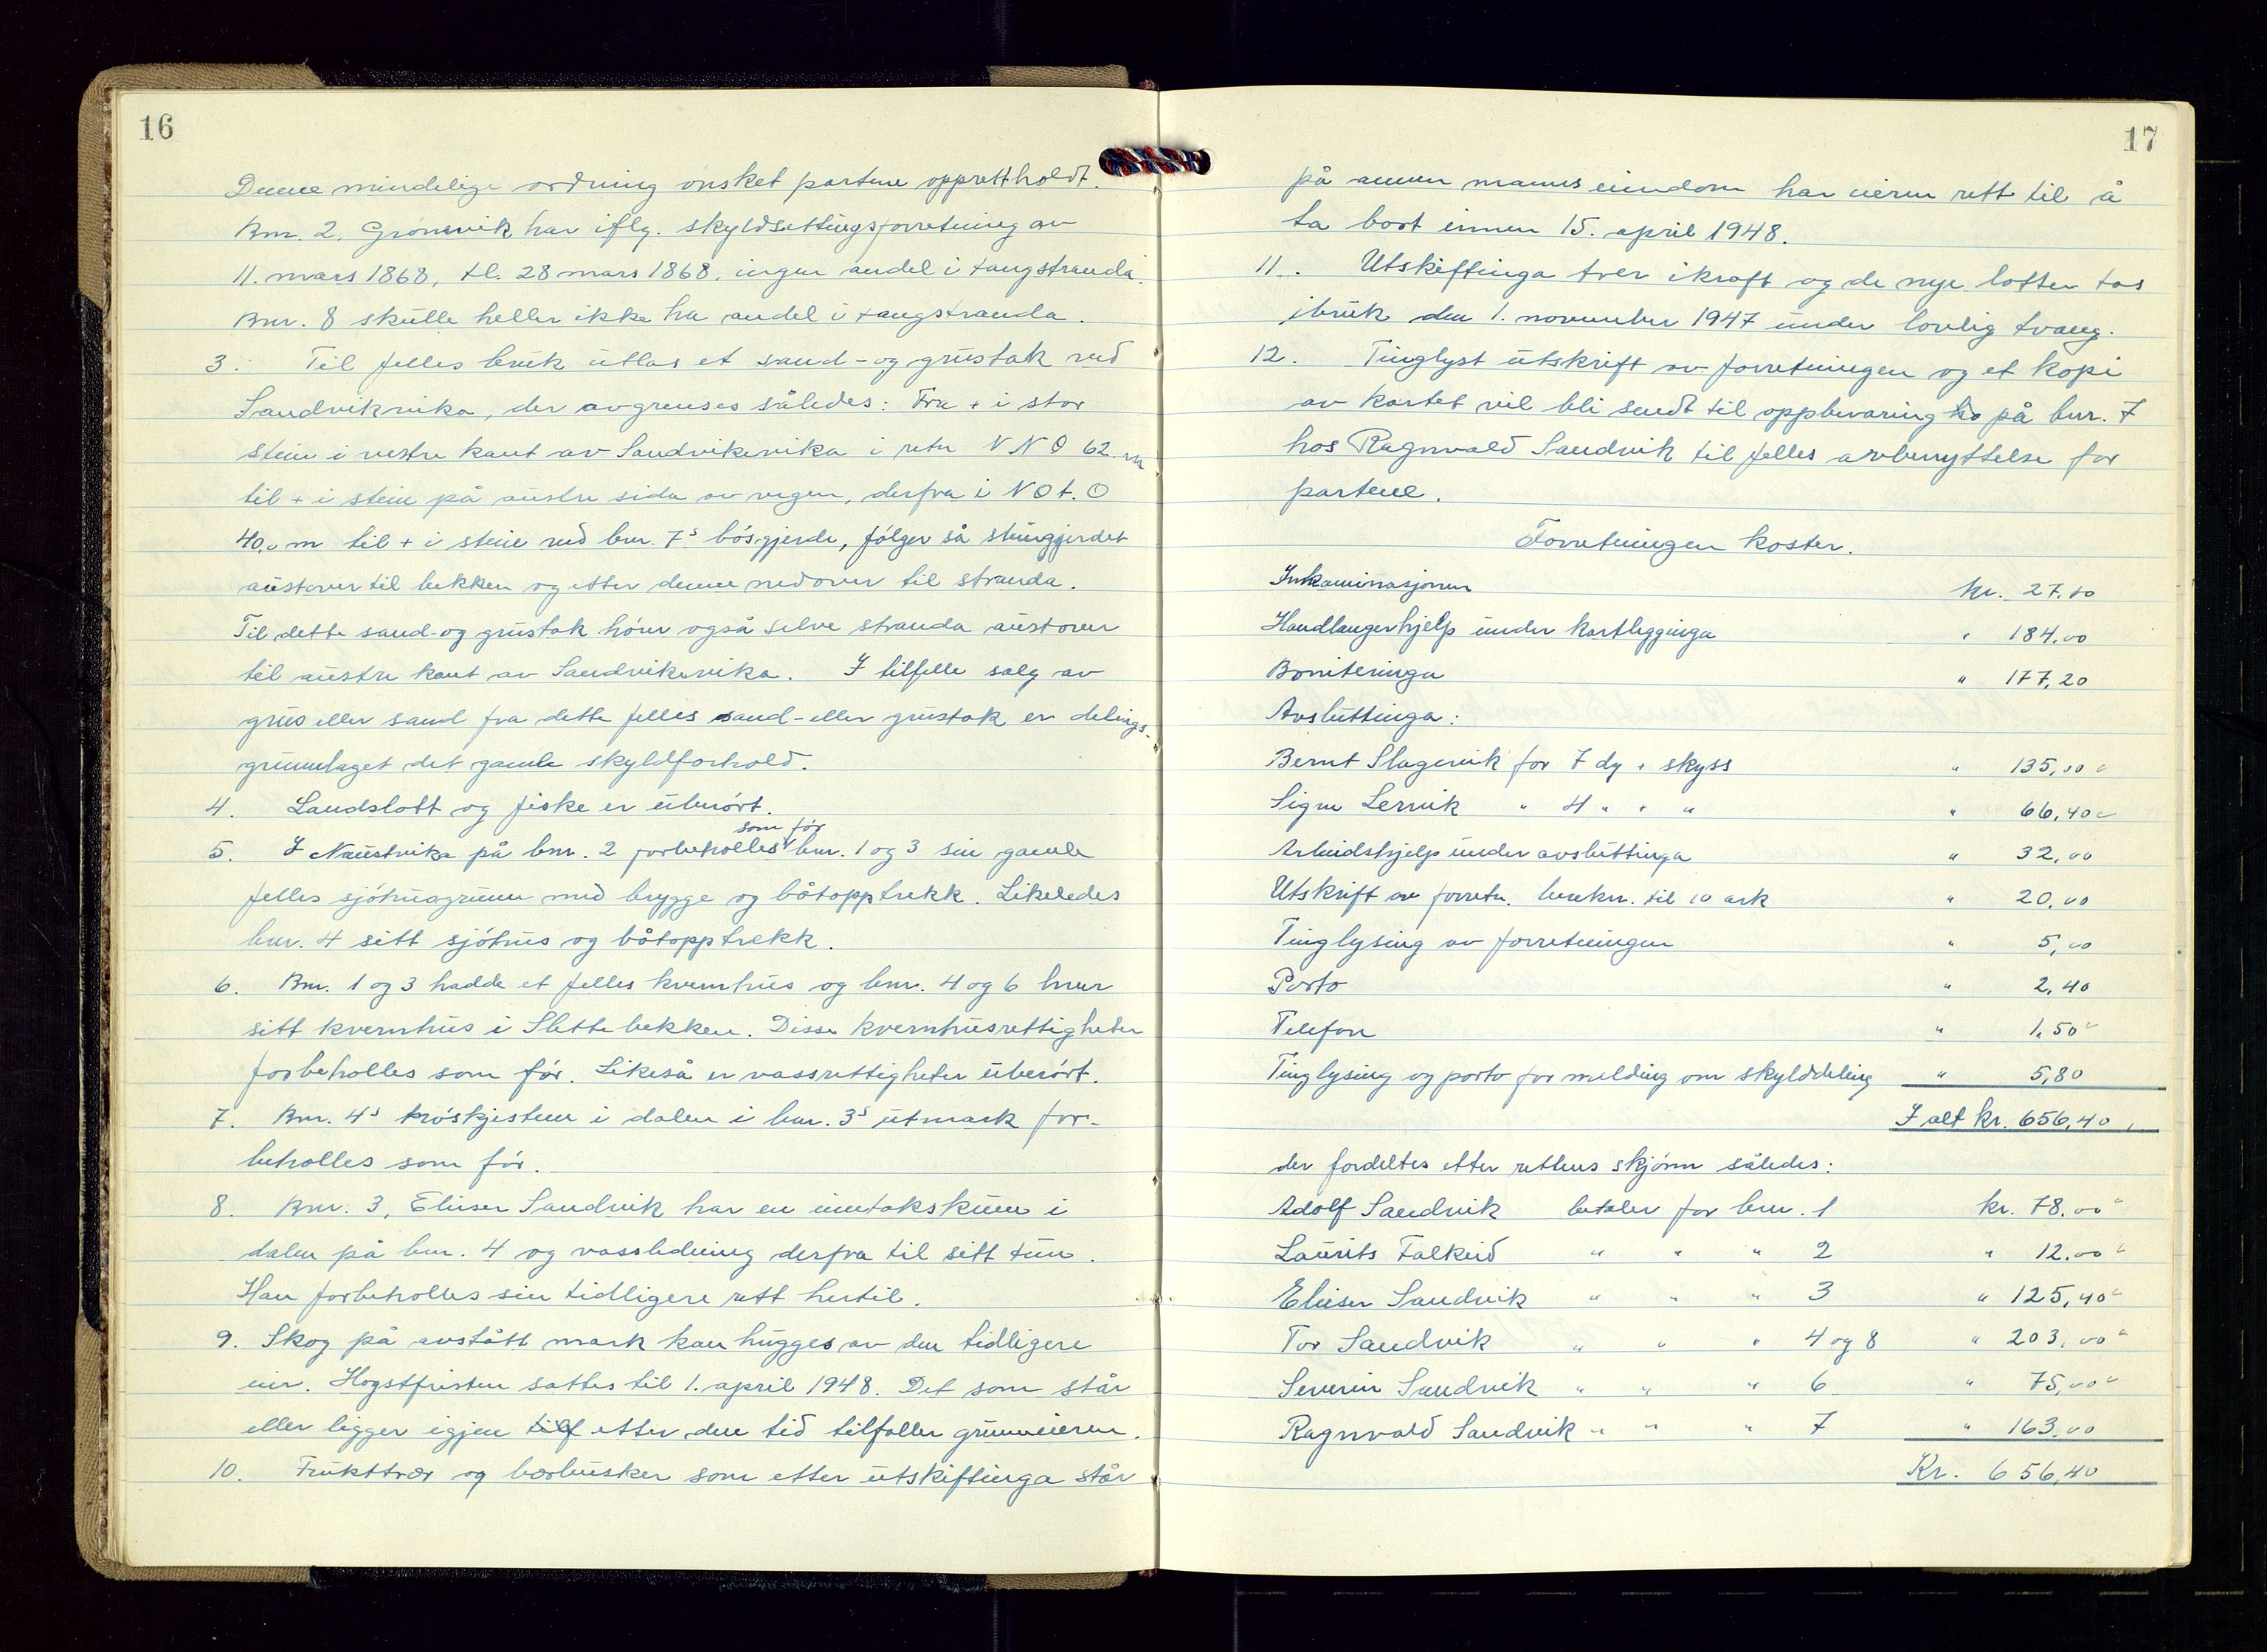 16
Denne mindelige ordning ønsket partene opprettholdt.
Bnr. 2, Grønsvik har iflg. skyldsettingsforretning av
11. mars 1868, tl. 28 mars 1868, ingen andel i tangstranda.
Bnr. 8 skulle heller ikke ha andel i tangstranda.
3. Til felles bruk utlas et sand- og grustak ved
Sandvikvika, der avgrenses således: Fra + i stor
stein i vestre kant av Sandvikevika i retn N N O 62.m
til + i stein på austre sida av vegen, derfra i N O t. O
40,0 m til + i stein ved bnr. 7s bøsgjerde, følger så steingjerdet
austover til bekken og etter denne nedover til stranda.
Til dette sand- og grustak hører også selve stranda austover
til austre kant av Sandvikevika. I tilfelle salg av
grus eller sand fra dette felles sand- eller grustak er delings-
grunnlaget det gamle skyldforhold.
4. Landslott og fiske er uberørt.
5. I Naustvika på bnr. 2 forbeholles som før bnr. 1 og 3 sin gamle
felles sjøhusgrunn med brygge og båtopptrekk. Likeledes
bnr. 4 sitt sjøhus og båtopptrekk.
6. Bnr. 1 og 3 hadde et felles kvernhus og bnr. 4 og 6 hver
sitt kvernhus i Slettebekken. Disse kvernhusrettigheter
forbeholles som før. Likeså er vassrettigheter uberørt.
7. Bnr. 4s trøskjestenn i dalen i bnr. 3s utmark for-
beholles som før.
8. Bnr. 3, Elieser Sandvik har en inntakskum i
dalen på bnr. 4 og vassledning derfra til sitt tun.
Han forbeholles sin tidligere rett hertil.
9. Skog på avstått mark kan hugges av den tidligere
eier. Hogstfristen settes til 1. april 1948. Det som står
eller ligger igjen etter den tid tilfaller grunneieren.
10. Frukttrær og bærbusker som etter utskiftinga står
17
på annen manns eiendom har eieren rett til å
ta bort innen 15. april 1948.
11. Utskiftinga trer ikraft og de nye lotter tas
ibruk den 1. november 1947 under lovlig tvang.
12. Tinglyst utskrift av forretningen og et kopi
av kartet vil bli sendt til oppbevaring på bnr. 7
hos Ragnvald Sandvik til felles avbenyttelse for
partene.
Forretningen koster.
Inkaminasjonen kr. 27,10
Handlangerhjelp under kartlegginga " 184,00
Boniteringa " 177,20
Avsluttinga:
Bernt Slagevik for 7 dg + skyss " 135,00
Signe Lervik " 4 " + " " 66,40
Arbeidshjelp under avsluttinga " 32,00
Utskrift av forretn. berekn. til 10 ark " 20,00
Tinglysing av forretningen " 5,00
Porto " 2,40
Telefon " 1,50
Tinglysing og porto for melding om skylddeling " 5,80
I alt kr. 656,40
der fordeltes etter rettens skjønn således:
Adolf Sandvik betaler for bnr. 1 kr. 78,00
Laurits Falkeid " " " 2 " 12,00
Elieser Sandvik " " " 3 " 125,40
Tor Sandvik " " " 4 og 8 " 203,00
Severin Sandvik " " " 6 " 75,00
Ragnvald Sandvik " " " 7 " 163,00
Kr. 656,40